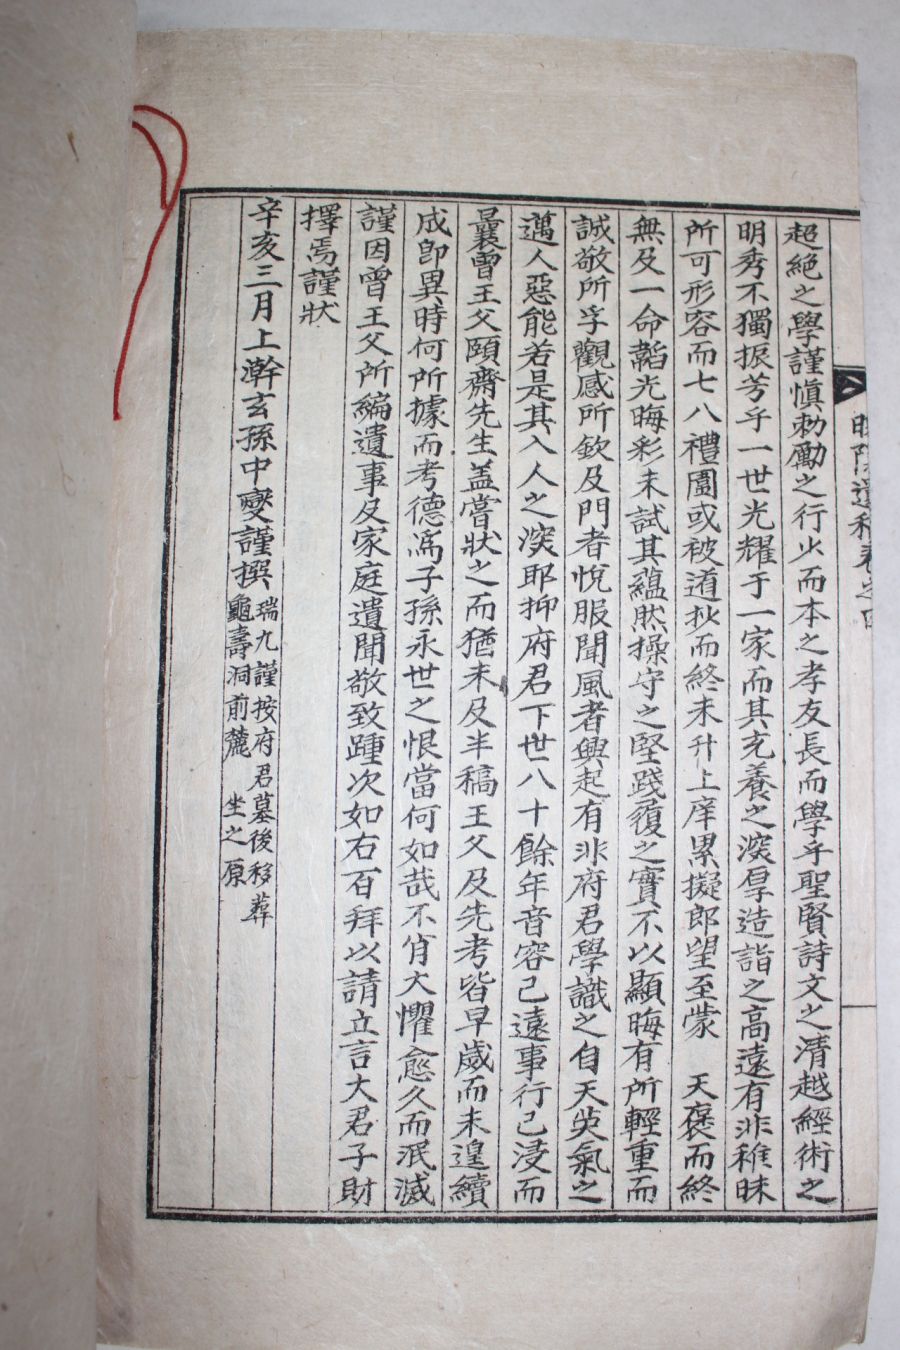 遺稿卷之四
超絶之學謹愼勅勵之行少而本之孝友長而學乎聖賢詩文之清越經術之
明秀不獨振芳乎一世光耀于一家而其充養之深厚造詣之高遠有非稚昧
所可形容而七八禮圍或被道抄而終未升上庠累擬郎望至蒙 天褒而終
無及一命韜光晦彩未試其蘊然操守之堅踐履之實不以顯晦有所輕重而
誠敬所孚觀感所欽及門者悅服聞風者興起有非府君學識之自天英氣之
邁人惡能若是其入人之深耶抑府君下世八十餘年音容已遠事行已浸而
曩曾王父頤齋先生盖嘗狀之而猶未及半稿王父及先考皆早歲而未遑續
成卽異時何所據而考德爲子孫永世之恨當何如哉不肖大懼愈久而泯滅
謹因曾王父所編遺事及家庭遺聞敬致踵次如右百拜以請立言大君子財
擇焉謹狀
辛亥三月上澣玄孫中燮謹撰
瑞九謹按府君墓後移葬
龜壽洞前麓 坐之原